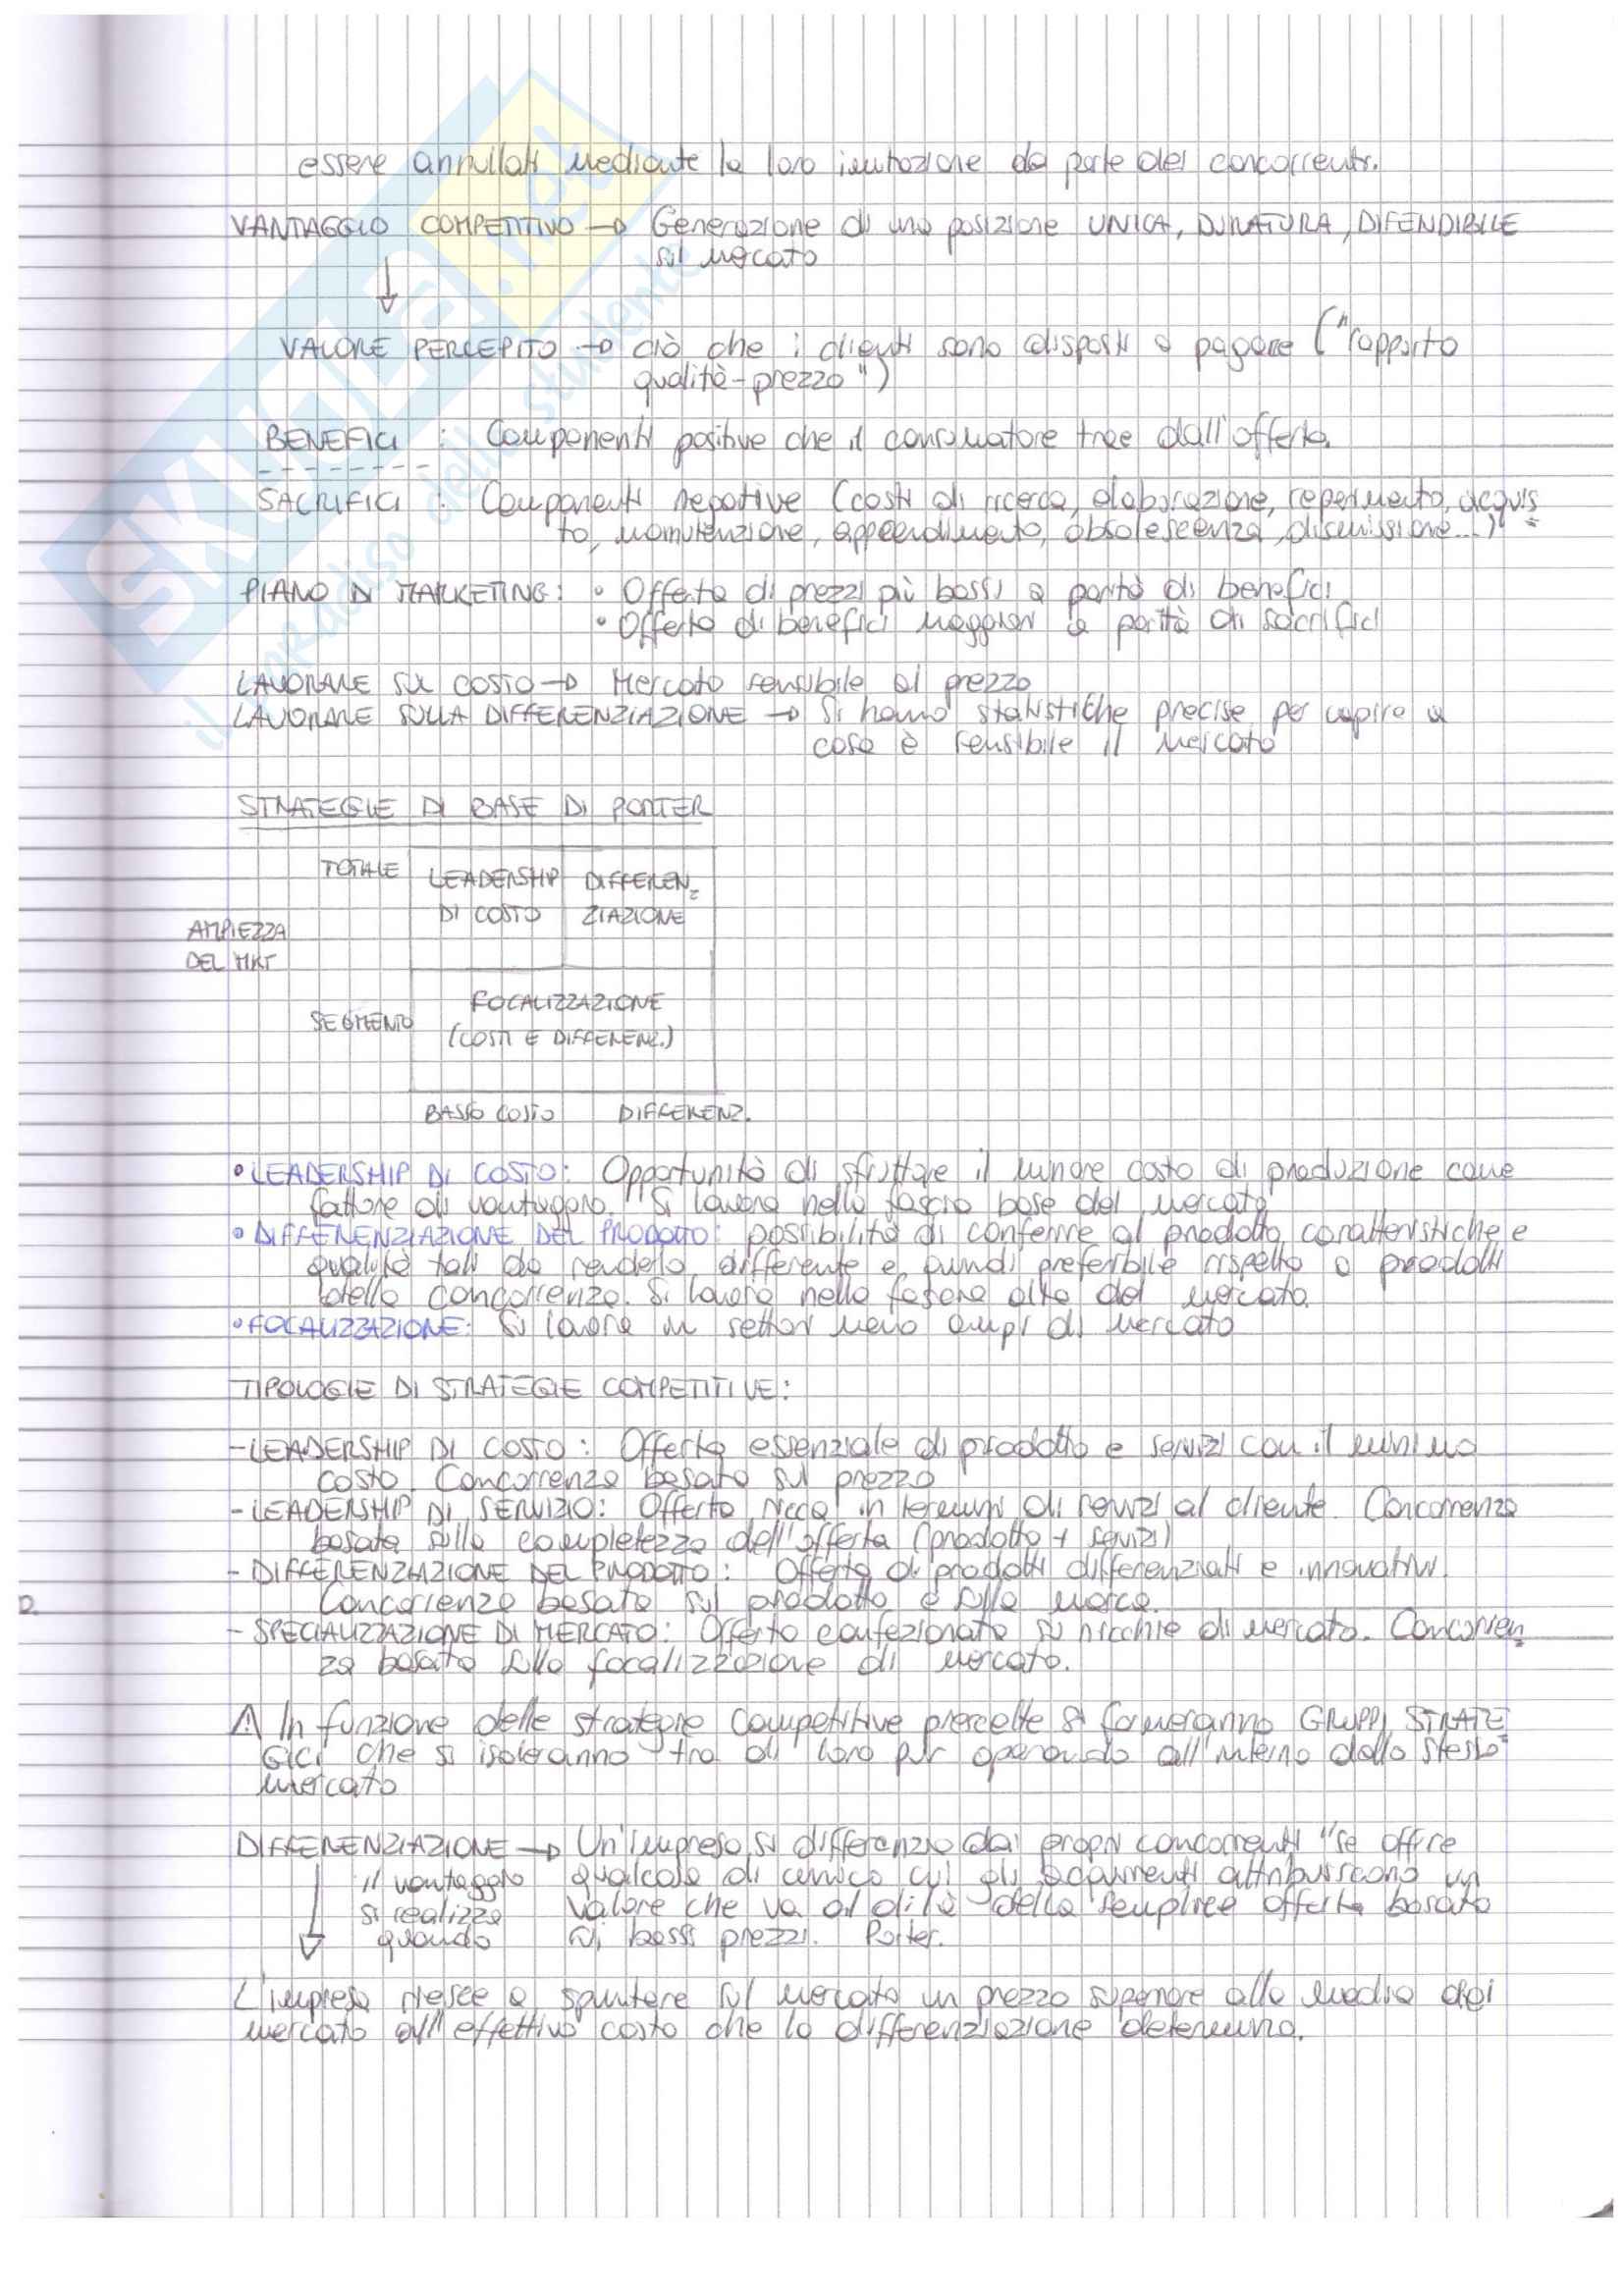 essere annullati mediante la loro imitazione da parte dei concorrenti.
VANTAGGIO COMPETITIVO → Generazione di una posizione UNICA, DURATURA, DIFENDIBILE
sul mercato
VALORE PERCEPITO → ciò che i clienti sono disposti a pagare ("rapporto
qualità-prezzo")
BENEFICI : Componenti positive che il consumatore trae dall'offerta.
SACRIFICI : Componenti negative (costi di ricerca, elaborazione, reperimento, acquis
to, manutenzione, apprendimento, obsolescenza, dismissione...)
PIANO DI MARKETING: • Offerta di prezzi più bassi a parità di benefici
• Offerta di benefici maggiori a parità di sacrifici
LAVORARE SUL COSTO → Mercato sensibile al prezzo
LAVORARE SULLA DIFFERENZIAZIONE → Si hanno statistiche precise per capire a
cosa è sensibile il mercato
STRATEGIE DI BASE DI PORTER
TOTALE LEADERSHIP DIFFEREN
DI COSTO ZIAZIONE
AMPIEZZA
DEL MKT
FOCALIZZAZIONE
SEGMENTO (COSTI E DIFFERENZ.)
BASSO COSTO DIFFERENZ.
• LEADERSHIP DI COSTO: Opportunità di sfruttare il minore costo di produzione come
fattore di vantaggio. Si lavora nella fascia base del mercato
• DIFFERENZIAZIONE DEL PRODOTTO: possibilità di conferire al prodotto caratteristiche e
qualità tali da renderlo differente e quindi preferibile rispetto a prodotti
della concorrenza. Si lavora nella fascia alta del mercato.
• FOCALIZZAZIONE: Si lavora in settori meno ampi di mercato
TIPOLOGIE DI STRATEGIE COMPETITIVE:
- LEADERSHIP DI COSTO: Offerta essenziale di prodotto e servizi con il minimo
costo. Concorrenza basata sul prezzo
- LEADERSHIP DI SERVIZIO: Offerta ricca in termini di servizi al cliente. Concorrenza
basata sulla completezza dell'offerta (prodotto + servizi)
- DIFFERENZIAZIONE DEL PRODOTTO: Offerta di prodotti differenziati e innovativi.
Concorrenza basata sul prodotto e sulla marca.
- SPECIALIZZAZIONE DI MERCATO: Offerta confezionata su nicchie di mercato. Concorren
za basata sulla focalizzazione di mercato.
⚠ In funzione delle strategie competitive prescelte si formeranno GRUPPI STRATE
GICI che si isoleranno tra di loro pur operando all'interno dello stesso
mercato
DIFFERENZIAZIONE → Un'impresa si differenzia dai propri concorrenti "se offre
il vantaggio qualcosa di unico cui gli acquirenti attribuiscono un
si realizza valore che va al di là della semplice offerta basata
quando su bassi prezzi. Porter.
L'impresa riesce a spuntare sul mercato un prezzo superiore alla media dei
mercato all'effettivo costo che la differenziazione determina.
SKUOLA.net
il paradiso dello studente